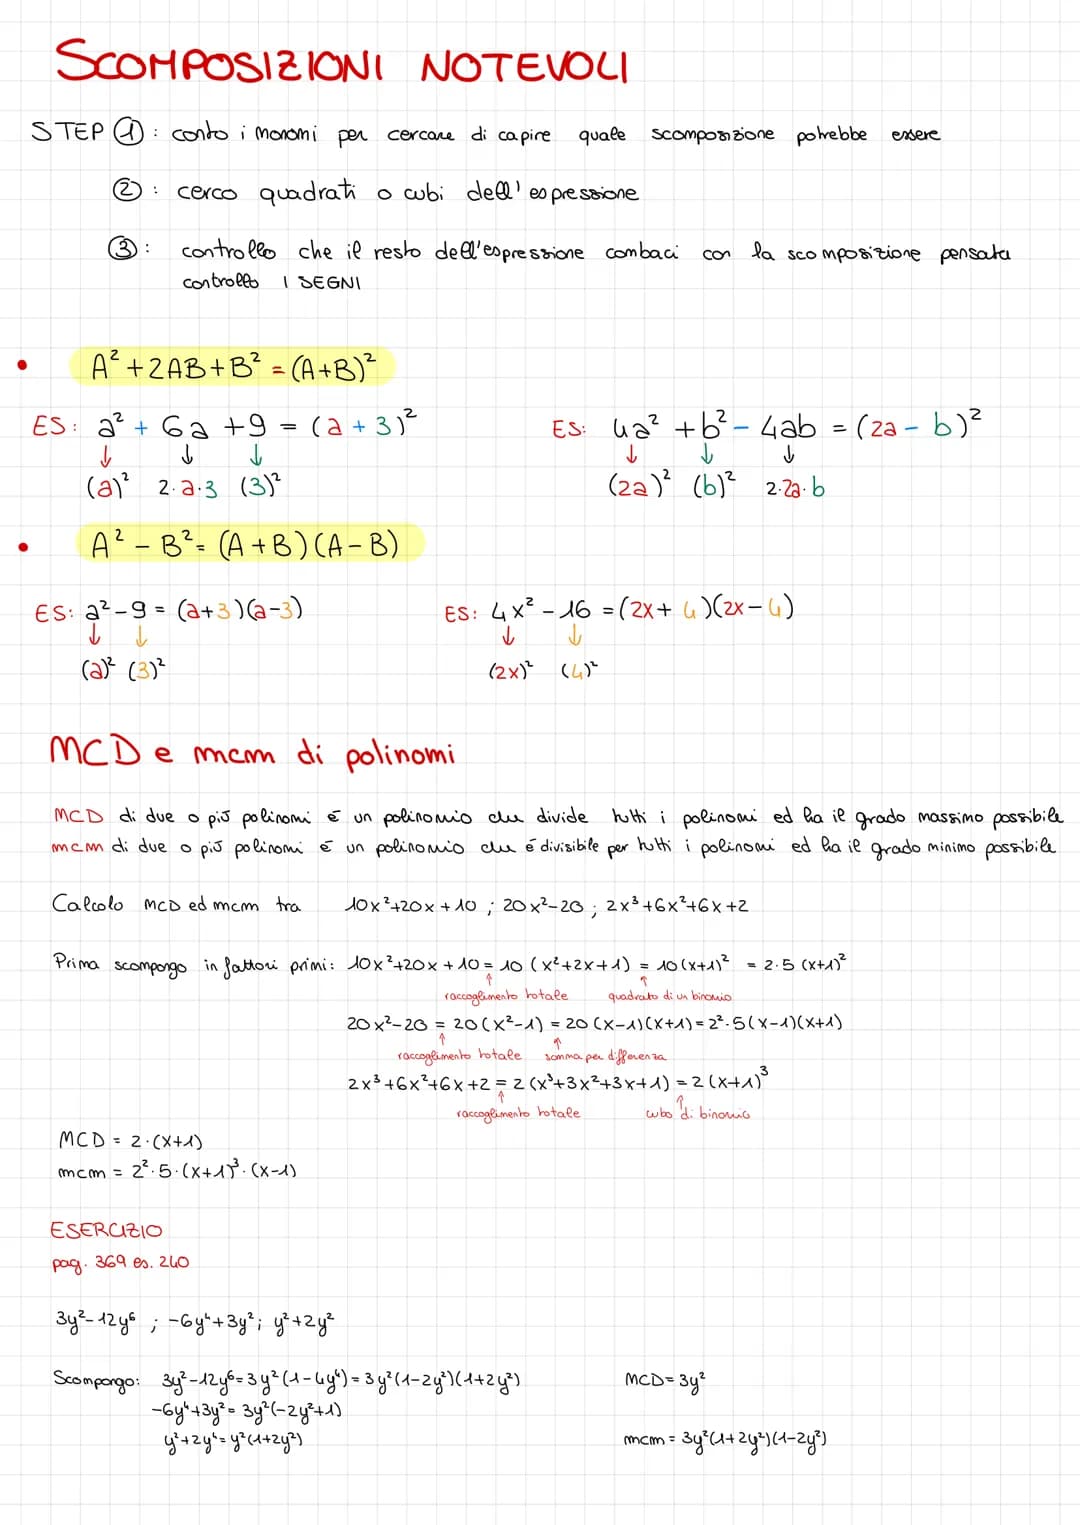 SCOMPOSIZIONI NOTEVOLI
STEP ①: conto i monomi per cercare di capire quale scomposizione potrebbe essere
②: cerco quadrati o cubi dell'espressione
③: controllo che il resto dell'espressione combaci con la scomposizione pensata
controllo I SEGNI
• A² + 2AB + B² = (A+B)²
ES: a² + 6a + 9 = (a + 3)² ES: 4a² + b² - 4ab = (2a - b)²
↓ ↓ ↓ ↓ ↓ ↓
(a)² 2·a·3 (3)² (2a)² (b)² 2·2a·b
• A² - B² = (A+B)(A-B)
ES: a² - 9 = (a+3)(a-3) ES: 4x² - 16 = (2x+4)(2x-4)
↓ ↓ ↓ ↓
(a)² (3)² (2x)² (4)²
MCD e mcm di polinomi
MCD di due o più polinomi é un polinomio che divide tutti i polinomi ed ha il grado massimo possibile
mcm di due o più polinomi é un polinomio che é divisibile per tutti i polinomi ed ha il grado minimo possibile
Calcolo MCD ed mcm tra 10x²+20x+10 ; 20x²-20 ; 2x³+6x²+6x+2
Prima scompongo in fattori primi: 10x²+20x+10 = 10(x²+2x+1) = 10(x+1)² = 2·5(x+1)²
↑ ↑
raccoglimento totale quadrato di un binomio
20x²-20 = 20(x²-1) = 20(x-1)(x+1) = 2²·5(x-1)(x+1)
↑ ↑
raccoglimento totale somma per differenza
2x³+6x²+6x+2 = 2(x³+3x²+3x+1) = 2(x+1)³
↑ ↑
raccoglimento totale cubo di binomio
MCD = 2·(x+1)
mcm = 2²·5·(x+1)³·(x-1)
ESERCIZIO
pag. 369 es. 240
3y²-12y⁶ ; -6y⁴+3y² ; y²+2y²
Scompongo: 3y²-12y⁶ = 3y²(1-4y⁴) = 3y²(1-2y²)(1+2y²) MCD = 3y²
-6y⁴+3y² = 3y²(-2y²+1)
y²+2y⁴ = y²(1+2y²) mcm = 3y²(1+2y²)(1-2y²)